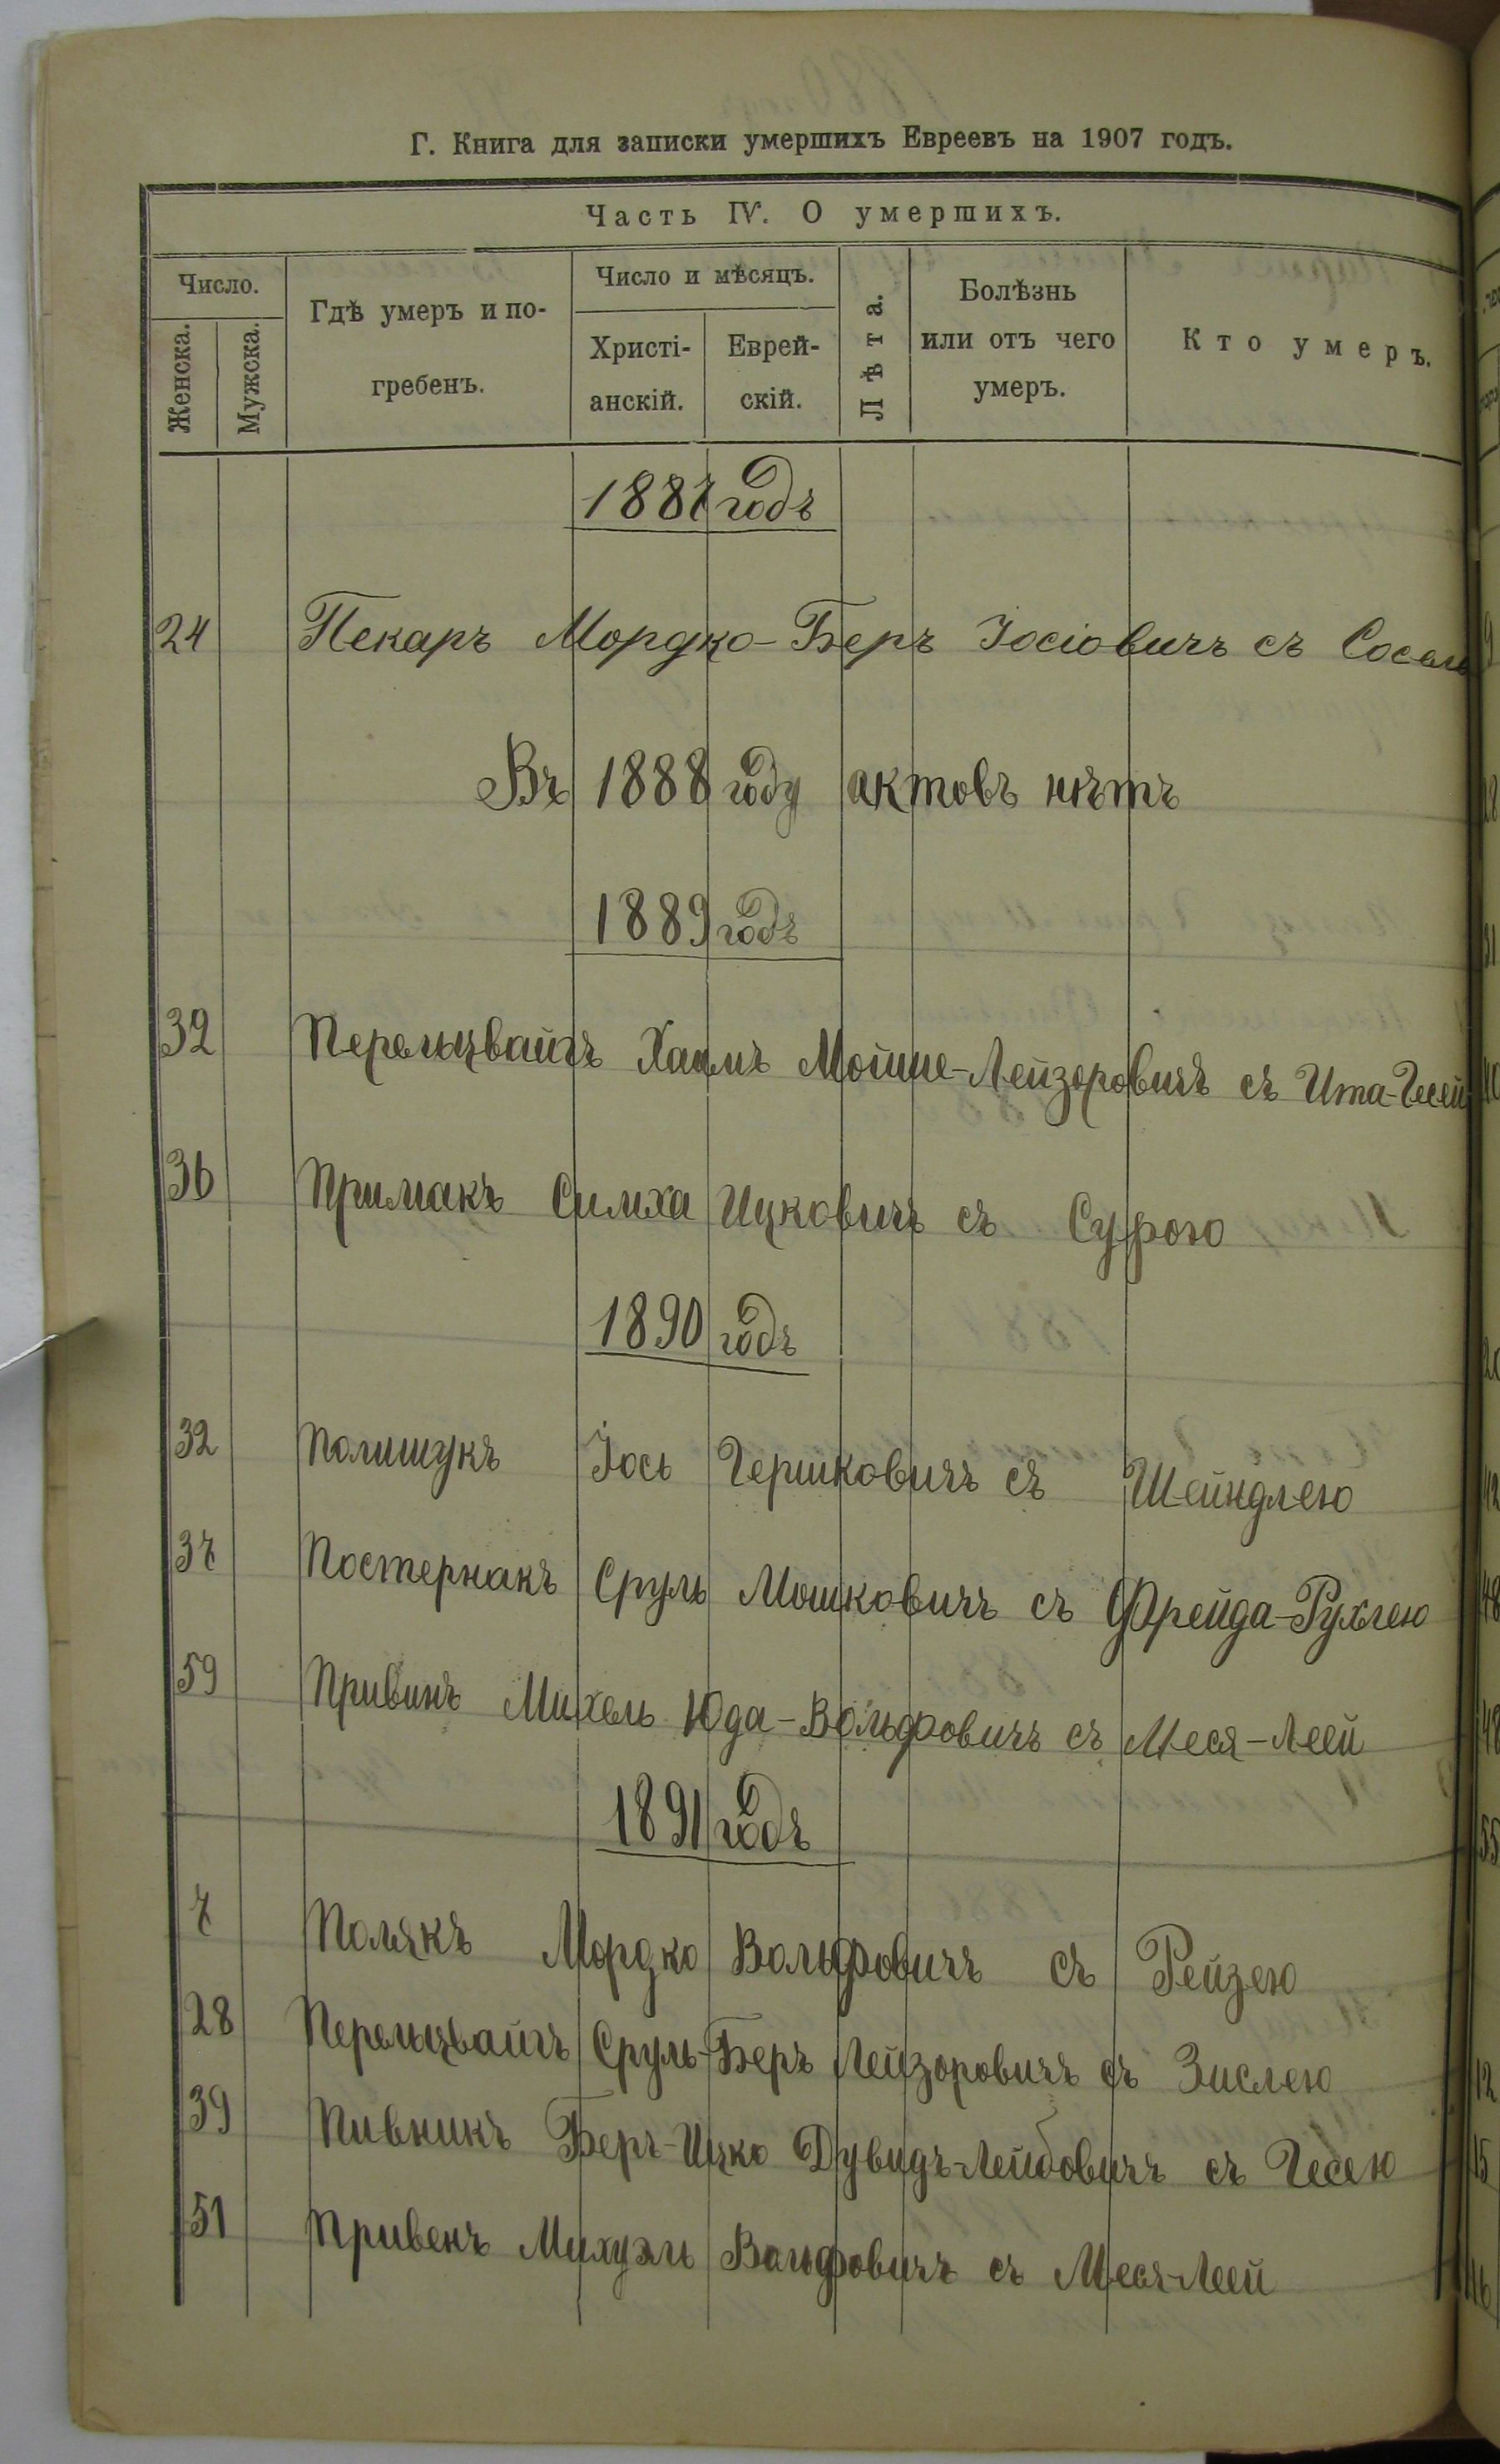 Г. Книга для записки умершихъ Евреевъ на 1907 годъ.
Часть IV. О умершихъ.
Число.
Женска.
Мужска.
Гдѣ умеръ и по-
гребенъ.
Число и мѣсяцъ.
Христі-
анскій.
Еврей-
скій.
Лѣта.
Болѣзнь
или отъ чего
умеръ.
Кто умеръ.
1887 годъ
24 Пекаръ Мордко-Беръ Іосіовичъ съ
Въ 1888 году актовъ нѣтъ
1889 годъ
32 Перельцвайгъ Хаимъ Мойше-Лейзоровичъ съ Ита-Гесей
36 Примакъ Симха Ицковичъ съ Сурою
1890 годъ
32 Полишукъ Іось Гершковичъ съ Шейндлею
37 Постернакъ Сруль Мошковичъ съ Фрейда-Рухлею
59 Привинъ Михель Юда-Вольфовичъ съ Меся-Леей
1891 годъ
7 Полякъ Мордко Вольфовичъ съ Рейзею
28 Перельцвайгъ Сруль-Беръ Лейзоровичъ съ Зислею
39 Пивникъ Беръ-Ицко Дувидъ-Лейбовичъ съ Гесею
51 Привенъ Михуэль Вольфовичъ съ Меся-Леей